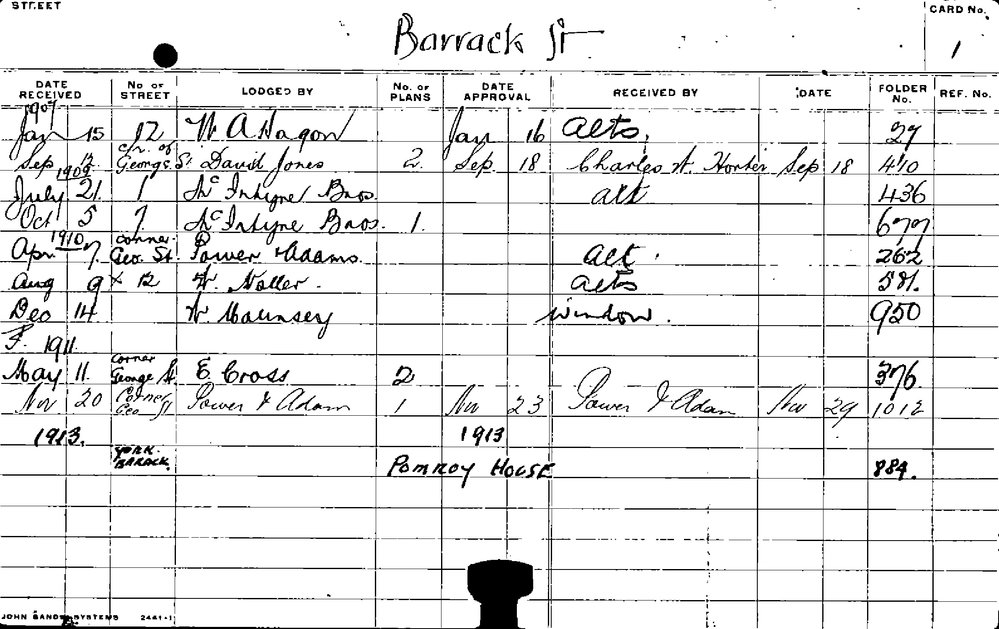 STREET
Barrack St
CARD No.
1
DATE RECEIVED No. OF STREET LODGED BY No. OF PLANS DATE APPROVAL RECEIVED BY DATE FOLDER No. REF. No.
1907
Jan 15 12 W A Hagon Jan 16 Alts. 27
Sep 12 cnr. of George St David Jones 2. Sep. 18 Charles A. Sep 18 410
1909
July 21. 1 McIntyre Bros. alt 436
Oct 5 7. McIntyre Bros. 1. 677
1910
Apr 7. corner Geo. St. Power & Adams. Alt. 262
Aug 9 x 12 W. Noller. alts 581.
Dec 14. W Maunsey window. 950
1911
May 11. corner George St E. Cross 2 376
Nov 20 Corner Geo St Power & Adam 1 Nov 23 Power & Adam Nov 29 1012
1913. 1913
YORK. BARACK. POMROY HOUSE 884.
JOHN SANDS SYSTEMS 2441-1